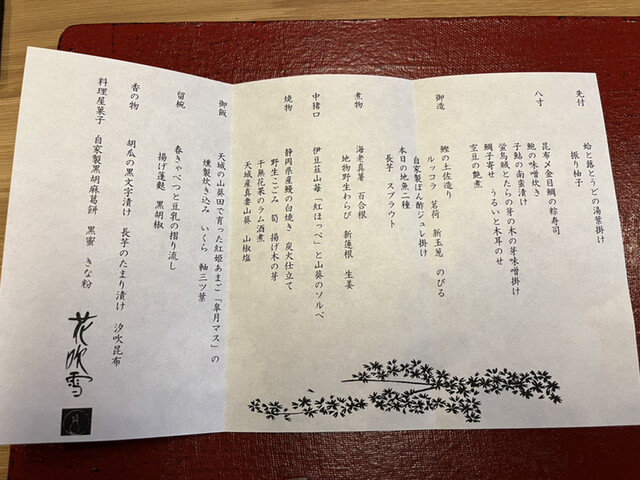 先付
蛤と蕗とうどの湯葉掛け
振り柚子
八寸
昆布〆金目鯛の粽寿司
鮑の味噌炊き
子鮎の南蛮漬け
蛍烏賊とたらの芽の木の芽味噌掛け
鯛子寄せ うるいと木耳のせ
空豆の艶煮
御造
鰹の土佐造り
ルッコラ 茗荷 新玉葱 のびる
自家製ぽん酢ジュレ掛け
本日の地魚二種
長芋 スプラウト
煮物
海老真薯 百合根
地物野生わらび 新蓮根 生姜
中猪口
伊豆韮山苺「紅ほっぺ」と山葵のソルベ
焼物
静岡県産鰻の白焼き 炭火仕立て
野生こごみ 筍 揚げ木の芽
干無花果のラム酒煮
天城産真妻山葵 山椒塩
御飯
天城の山葵田で育った紅姫あまご「皐月マス」の
燻製炊き込み いくら 軸三ツ葉
留椀
春きゃべつと豆乳の摺り流し
揚げ蓬麩 黒胡椒
香の物
胡瓜の黒文字漬け 長芋のたまり漬け 汐吹昆布
料理屋菓子 自家製黒胡麻葛餅 黒蜜 きな粉
花吹雪